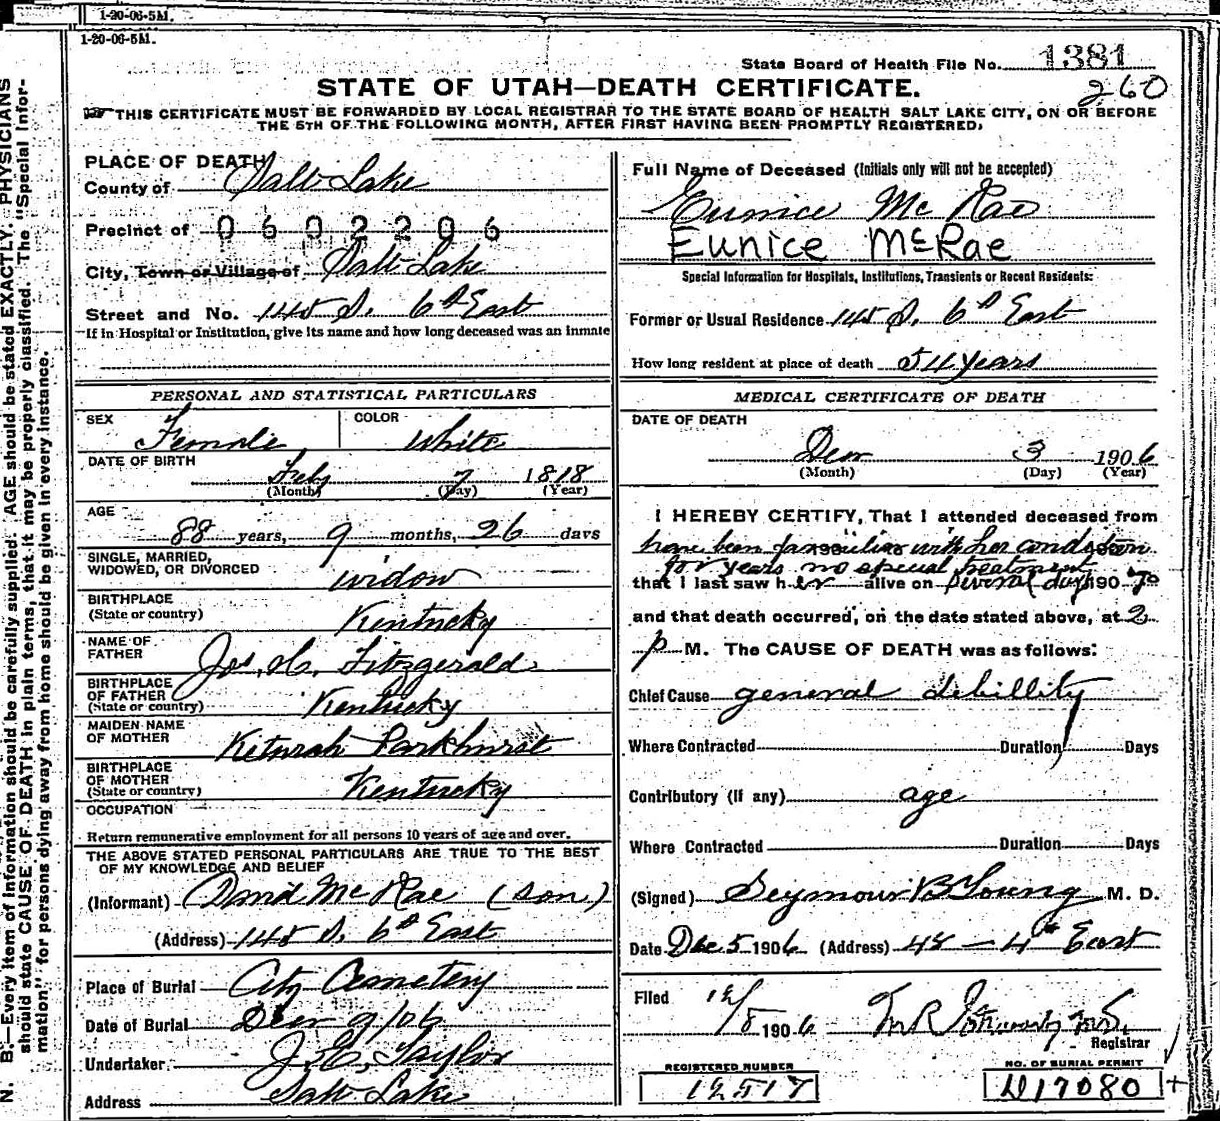 1-20-06-5M.
1-20-06-5M.
State Board of Health File No. 1381
260
STATE OF UTAH—DEATH CERTIFICATE.
THIS CERTIFICATE MUST BE FORWARDED BY LOCAL REGISTRAR TO THE STATE BOARD OF HEALTH SALT LAKE CITY, ON OR BEFORE
THE 5TH OF THE FOLLOWING MONTH, AFTER FIRST HAVING BEEN PROMPTLY REGISTERED.
PLACE OF DEATH
County of Salt Lake
Precinct of 0602206
City, Town or Village of Salt Lake
Street and No. 145 S. 6th East
If in Hospital or Institution, give its name and how long deceased was an inmate
Full Name of Deceased (Initials only will not be accepted)
Eunice Mc Rae
Eunice McRae
Special Information for Hospitals, Institutions, Transients or Recent Residents:
Former or Usual Residence 145 S. 6th East
How long resident at place of death 54 years
PERSONAL AND STATISTICAL PARTICULARS
SEX Female COLOR White
DATE OF BIRTH Feby 7 1818
(Month) (Day) (Year)
AGE
88 years, 9 months, 26 days
SINGLE, MARRIED,
WIDOWED, OR DIVORCED widow
BIRTHPLACE
(State or country) Kentucky
NAME OF
FATHER Jos. H. Fitzgerald
BIRTHPLACE
OF FATHER
(State or country) Kentucky
MAIDEN NAME
OF MOTHER Keturah Parkhurst
BIRTHPLACE
OF MOTHER
(State or country) Kentucky
OCCUPATION
Return remunerative employment for all persons 10 years of age and over.
THE ABOVE STATED PERSONAL PARTICULARS ARE TRUE TO THE BEST
OF MY KNOWLEDGE AND BELIEF
(Informant) David McRae (son)
(Address) 145 S. 6th East
Place of Burial City Cemetery
Date of Burial Decr 9/06
Undertaker J. E. Taylor
Address Salt Lake
MEDICAL CERTIFICATE OF DEATH
DATE OF DEATH
Decr 3 1906
(Month) (Day) (Year)
I HEREBY CERTIFY, That I attended deceased from
have been familiar with her condition
for years no special treatment
that I last saw her alive on several days 190
and that death occurred, on the date stated above, at 2
p M. The CAUSE OF DEATH was as follows:
Chief Cause general debillity
Where Contracted Duration Days
Contributory (if any) age
Where Contracted Duration Days
(Signed) Seymour B Young M. D.
Date Dec 5 1906 (Address) 48 — 4th East
Filed 12/8 1906
Registrar
REGISTERED NUMBER
12517
NO. OF BURIAL PERMIT
D17080
N. B.—Every item of information should be carefully supplied. AGE should be stated EXACTLY. PHYSICIANS
should state CAUSE OF DEATH in plain terms, that it may be properly classified. The "Special Infor-
mation" for persons dying away from home should be given in every instance.